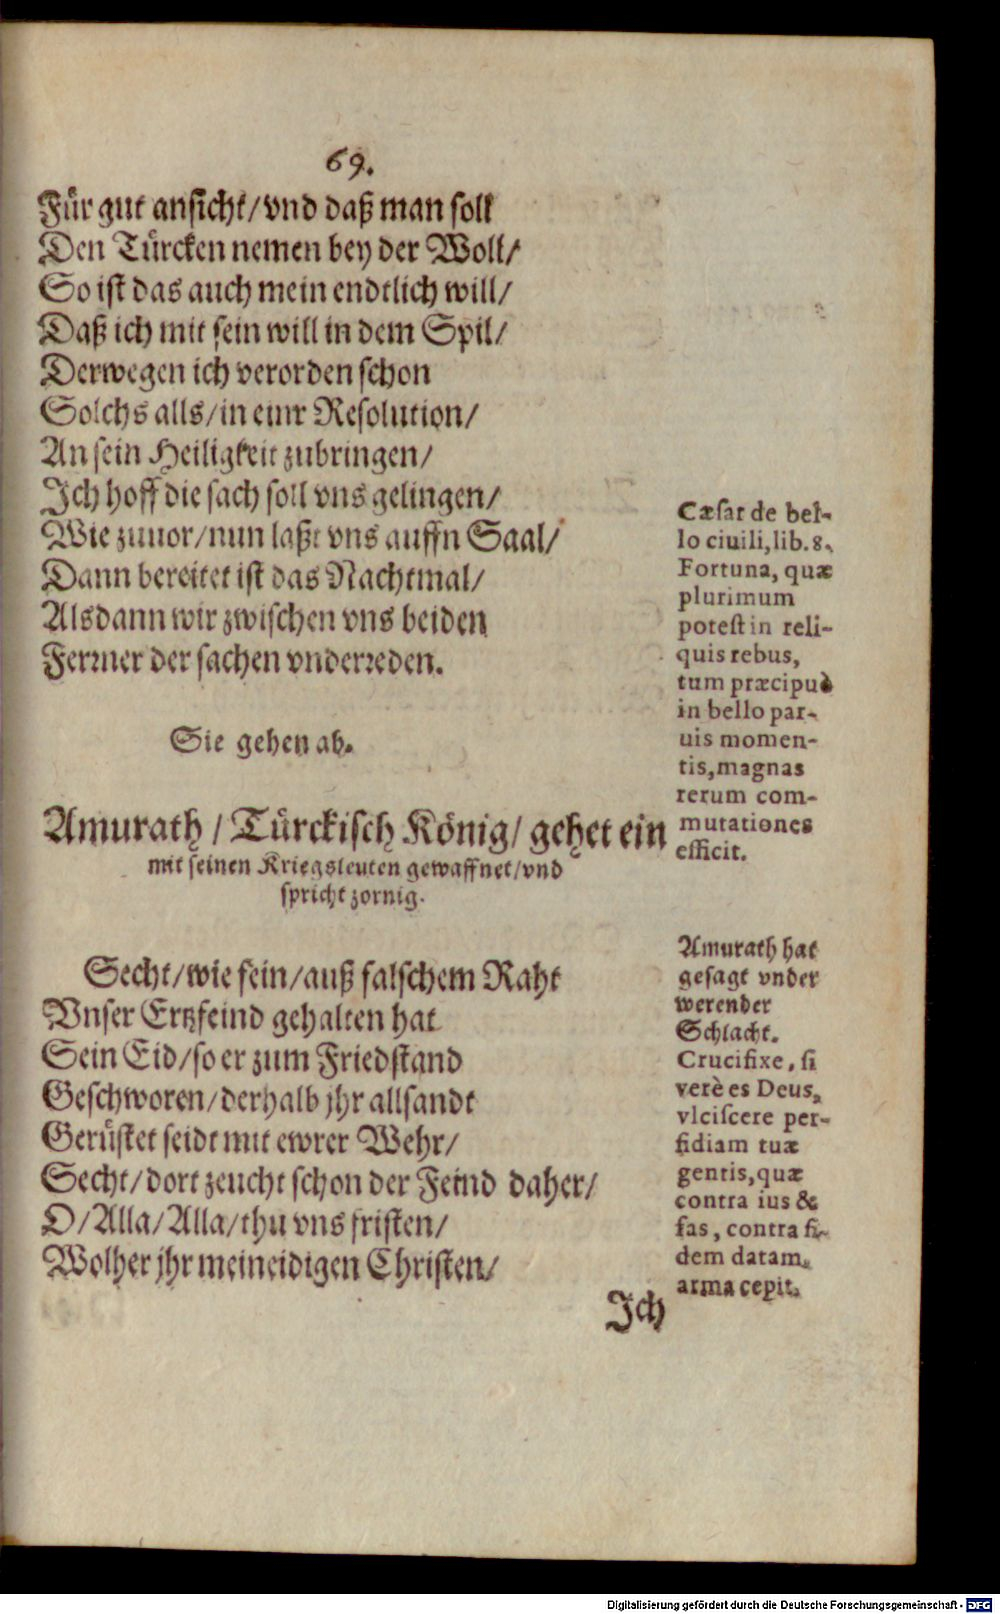 69.
Für gut ansicht/vnd daß man soll
Den Türcken nemen bey der Woll/
So ist das auch mein endtlich will/
Daß ich mit sein will in dem Spil/
Derwegen ich verorden schon
Solchs alls/in einr Resolution/
An sein Heiligkeit zubringen/
Ich hoff die sach soll vns gelingen/
Wie zuuor/nun laßt vns auffn Saal/
Dann bereitet ist das Nachtmal/
Alsdann wir zwischen vns beiden
Ferrner der sachen vnderreden.
Sie gehen ab.
Cæsar de bel-
lo ciuili, lib. 8.
Fortuna, quæ
plurimum
potest in reli-
quis rebus,
tum præcipuè
in bello par-
uis momen-
tis, magnas
rerum com-
mutationes
efficit.
Amurath/Türckisch König/gehet ein
mit seinen Kriegsleuten gewaffnet/vnd
spricht zornig.
Secht/wie fein/auß falschem Raht
Vnser Ertzfeind gehalten hat
Sein Eid/so er zum Friedstand
Geschworen/derhalb jhr allsandt
Gerüstet seidt mit ewrer Wehr/
Secht/dort zeucht schon der Feind daher/
O/Alla/Alla/thu vns fristen/
Wolher jhr meineidigen Christen/
Amurath hat
gesagt vnder
werender
Schlacht.
Crucifixe, si
verè es Deus,
vlciscere per-
fidiam tuæ
gentis, quæ
contra ius &
fas, contra fi-
dem datam,
arma cepit.
Ich
Digitalisierung gefördert durch die Deutsche Forschungsgemeinschaft - DFG